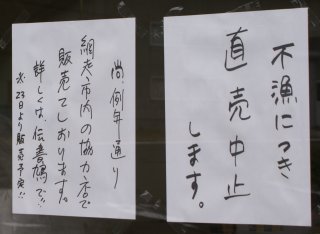 不漁につき
直売中止
します。
尚、例年通り
網走市内の協力店で
販売しております。
詳しくは、伝書鳩で!!
水.23日より販売予定!!